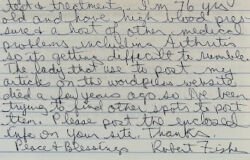 tests & treatments. I'm 76 yrs
old and have high blood pres
sure & a host of other medical
problems including Arthritis
so its getting difficult to
The lady that use to post my
articles on the wordpress website
died a few years ago so I've been
trying to find other spots to post
them. Please post the enclosed
info on your site. Thanks.
Peace & Blessings Robert Fisher